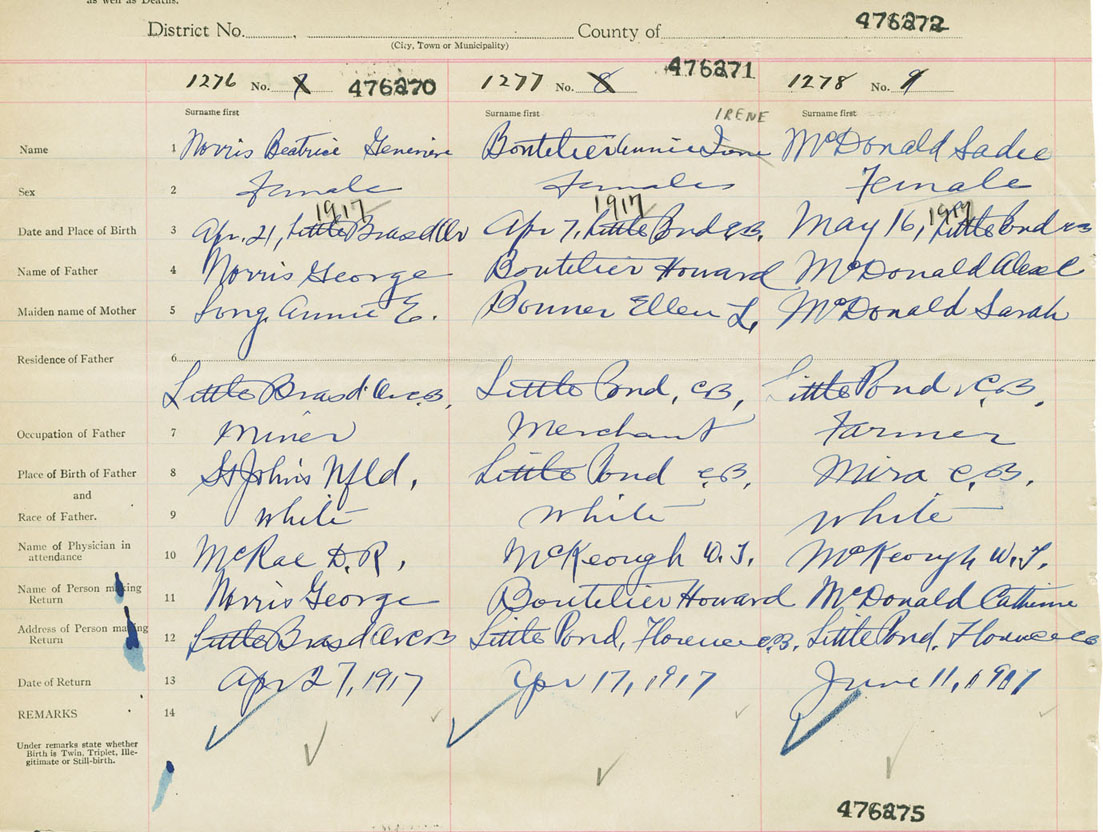 as well as Deaths.
District No. , County of 476272
(City, Town or Municipality)
1276 No. 7 476270 1277 No. 8 476271 1278 No. 9
Surname first Surname first IRENE Surname first
Name 1 Norris Beatrice Genevieve Boutelier Annie June McDonald Sadie
Sex 2 Female Female Female
1917 1917 1917
Date and Place of Birth 3 Apr. 21, Little Bras d'Or Apr 7, Little Pond C.B. May 16, Little Pond C.B.
Name of Father 4 Norris George Boutelier Howard McDonald Alex
Maiden name of Mother 5 Long Annie E. Bonner Ellen L. McDonald Sarah
Residence of Father 6
Little Bras d'Or C.B. Little Pond, C.B, Little Pond, C.B.
Occupation of Father 7 Miner Merchant Farmer
Place of Birth of Father 8 St John's Nfld. Little Pond C.B. Mira C.B.
and
Race of Father. 9 White White White
Name of Physician in
attendance 10 McRae D.R. McKeough W. J. McKeough W. J.
Name of Person making
Return 11 Norris George Boutelier Howard McDonald Catherine
Address of Person making
Return 12 Little Bras d'Or C.B Little Pond, Florence C.B. Little Pond, Florence C.B
Date of Return 13 Apr 27, 1917 Apr 17, 1917 June 11, 1917
REMARKS 14
Under remarks state whether
Birth is Twin, Triplet, Ille-
gitimate or Still-birth.
476275